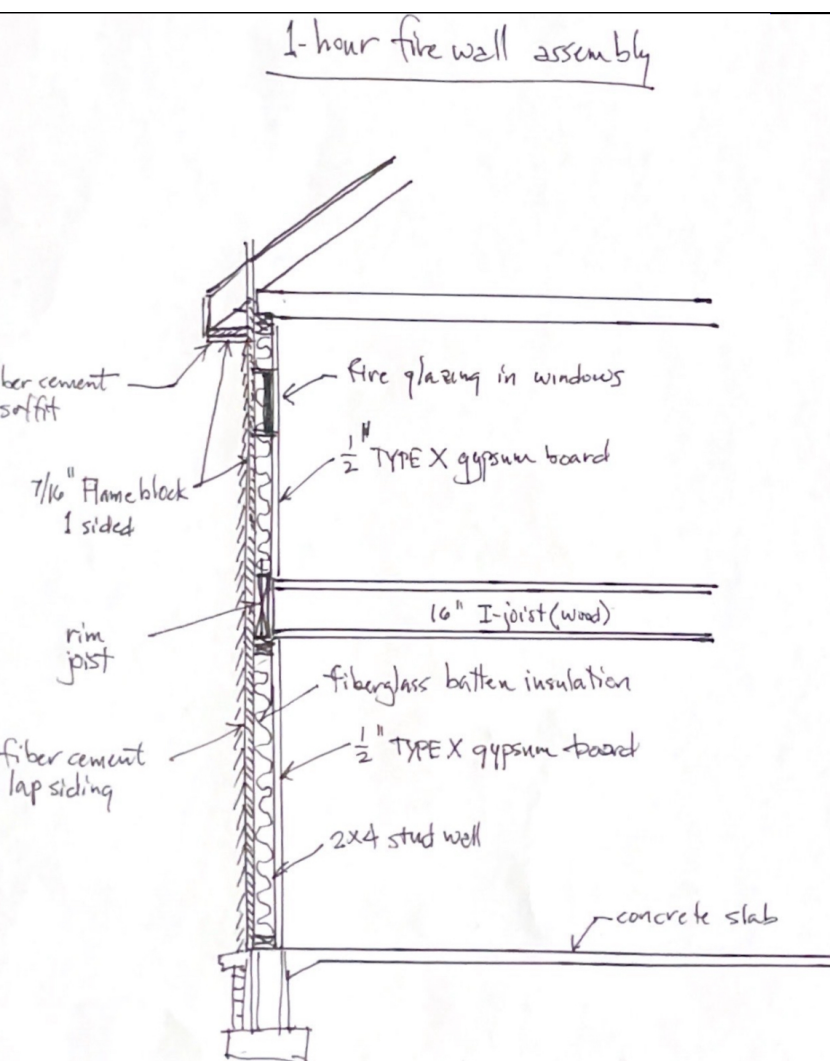 1-hour fire wall assembly
ber cement
soffit
fire glazing in windows
1/2" TYPE X gypsum board
7/16" Flameblock
1 sided
16" I-joist (wood)
rim
joist
fiberglass batten insulation
fiber cement
lap siding
1/2" TYPE X gypsum board
2x4 stud wall
concrete slab